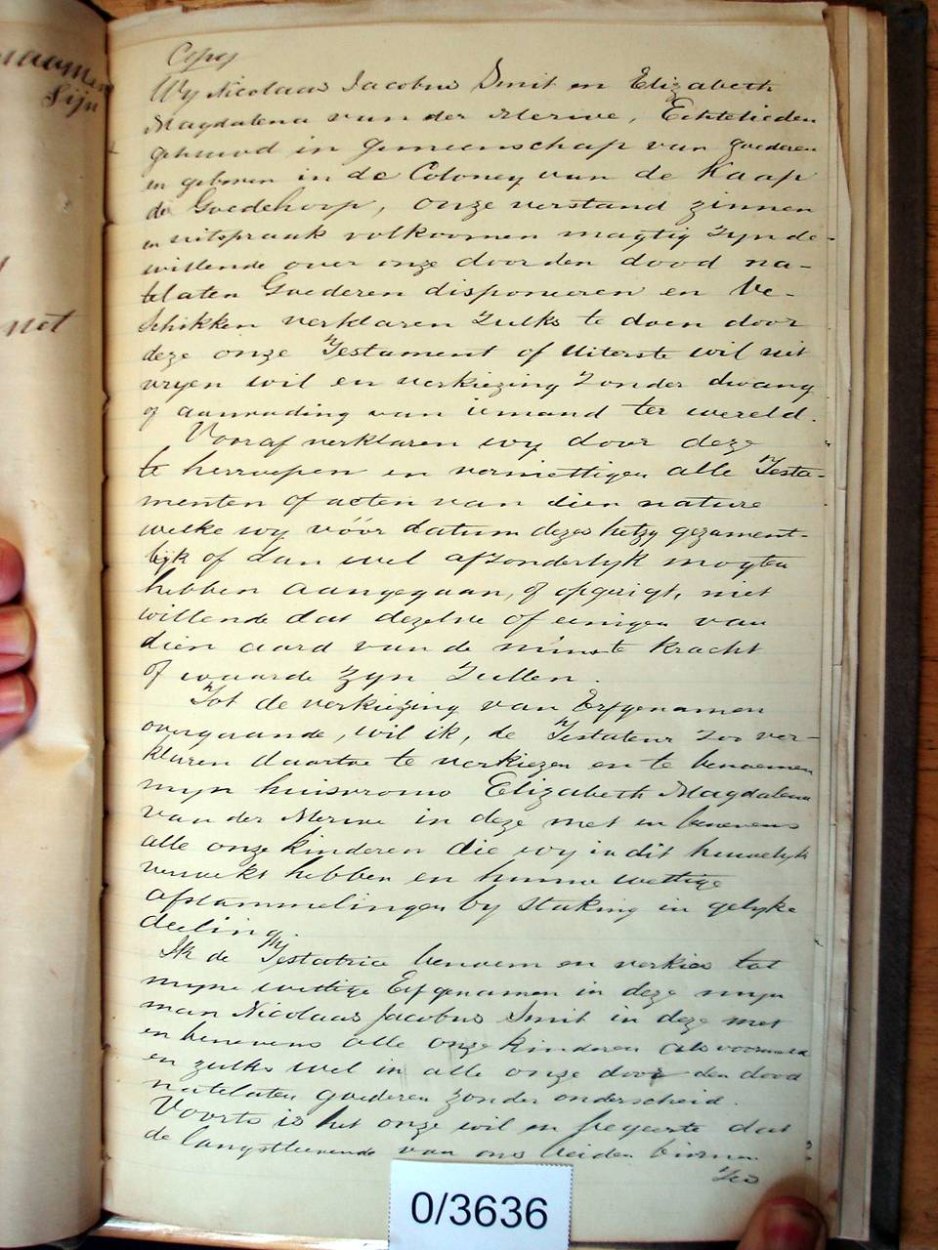 naamen
Sijn
not
Copy
Wy Nicolaas Jacobus Smit en Elizabeth
Magdalena van der Merwe, Echtelieden
gehuwd in gemeenschap van goederen
en geboren in de Coloney van de Kaap
de Goedehoop, onze verstand zinnen
en uitspraak volkoomen magtig zynde
willende over onze door den dood na-
telaten Goederen disponeeren en be-
schikken verklaren zulks te doen door
deze onze Testament of Uiterste wil uit
vryen wil en verkiezing zonder dwang
of aanrading van iemand ter wereld.
Vooraf verklaren wy door deze
te herroepen en vernietigen alle Testa-
menten of acten van dien nature
welke wy vóór datum dezes hetzy gezament-
lijk of dan wel afzonderlyk mogten
hebben aangegaan, of opgerigt, niet
willende dat dezelve of eenigen van
dien aard van de minste kracht
of waarde zyn zullen.
Tot de verkiezing van Erfgenamen
overgaande, wil ik, de Testateur zoo ver-
klaren daartoe te verkiezen en te benoemen
myn huisvrouw Elizabeth Magdalena
van der Merwe in deze met en benevens
alle onze kinderen die wy in dit huwelyk
verwekt hebben en hunne wettige
afstammelingen by staking in gelyke
deeling.
Ik de Testatrice benoem en verkies tot
myne wettige Erfgenamen in deze myn
man Nicolaas Jacobus Smit in deze met
en benevens alle onze kinderen als voormeld
en zulks wel in alle onze door den dood
natelaten goederen zonder onderscheid.
Voorts is het onze wil en begeerte dat
de langstleevende van ons beiden
0/3636